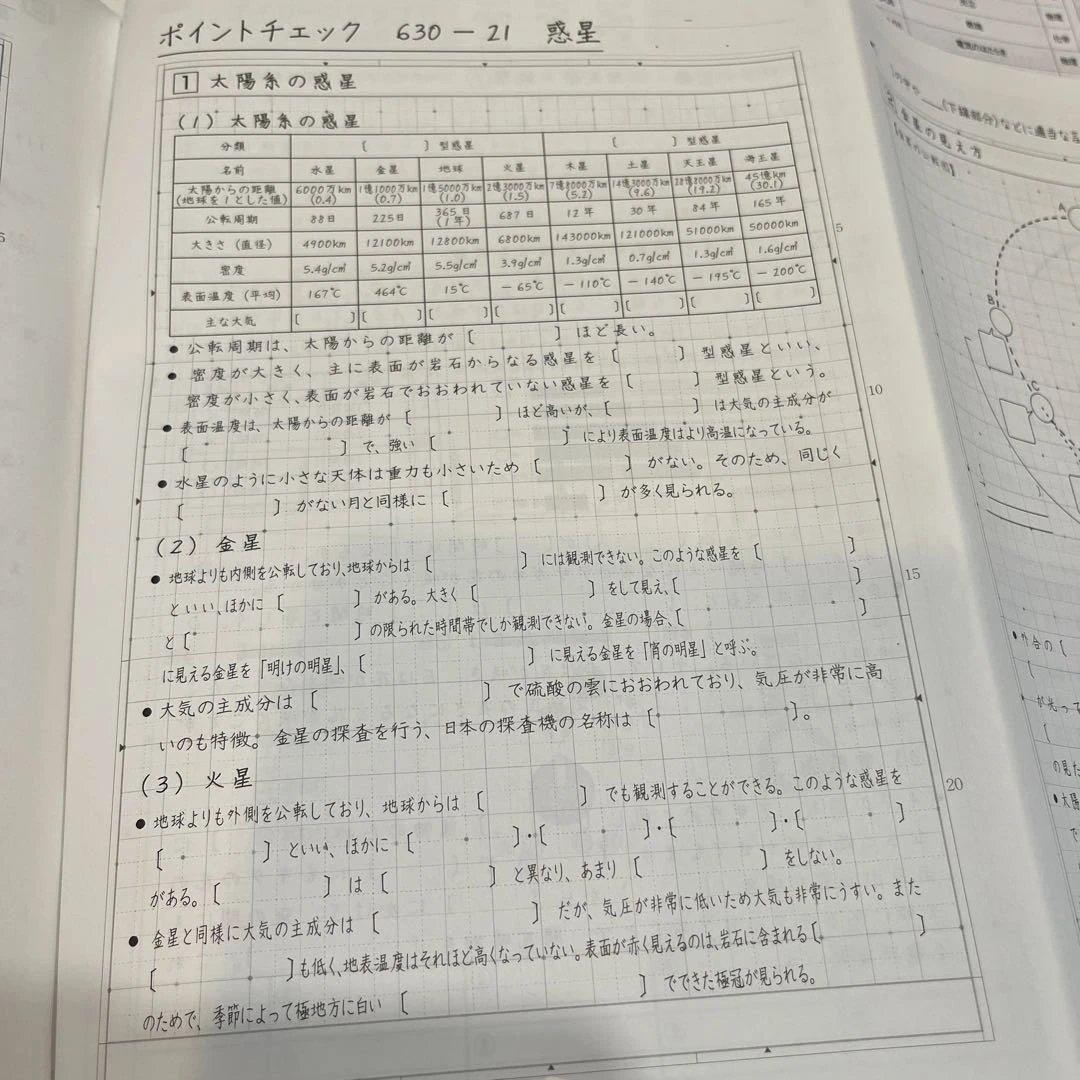 ポイントチェック 630-21 惑星
1 太陽系の惑星
(1) 太陽系の惑星
分類 [ ] 型惑星 [ ] 型惑星
名前 水星 金星 地球 火星 木星 土星 天王星 海王星
太陽からの距離 6000万km 1億1000万km 1億5000万km 2億3000万km 7億8000万km 14億3000万km 28億8000万km 45億km
(地球を1とした値) (0.4) (0.7) (1.0) (1.5) (5.2) (9.6) (19.2) (30.1)
公転周期 88日 225日 365日(1年) 687日 12年 30年 84年 165年
大きさ (直径) 4900km 12100km 12800km 6800km 143000km 121000km 51000km 50000km
密度 5.4g/c㎥ 5.2g/c㎥ 5.5g/c㎥ 3.9g/c㎥ 1.3g/c㎥ 0.7g/c㎥ 1.3g/c㎥ 1.6g/c㎥
表面温度 (平均) 167℃ 464℃ 15℃ -65℃ -110℃ -140℃ -195℃ -200℃
主な大気 [ ] [ ] [ ] [ ] [ ] [ ] [ ] [ ]
● 公転周期は、太陽からの距離が [ ] ほど長い。
● 密度が大きく、主に表面が岩石からなる惑星を [ ] 型惑星といい、
密度が小さく、表面が岩石でおおわれていない惑星を [ ] 型惑星という。
● 表面温度は、太陽からの距離が [ ] ほど高いが、[ ] は大気の主成分が
[ ] で、強い [ ] により表面温度はより高温になっている。
● 水星のように小さな天体は重力も小さいため [ ] がない。そのため、同じく
[ ] がない月と同様に [ ] が多く見られる。
(2) 金星
● 地球よりも内側を公転しており、地球からは [ ] には観測できない。このような惑星を [ ]
といい、ほかに [ ] がある。大きく [ ] をして見え、[ ]
と [ ] の限られた時間帯でしか観測できない。金星の場合、[ ]
に見える金星を「明けの明星」、[ ] に見える金星を「宵の明星」と呼ぶ。
● 大気の主成分は [ ] で硫酸の雲におおわれており、気圧が非常に高
いのも特徴。金星の探査を行う、日本の探査機の名称は [ ]。
(3) 火星
● 地球よりも外側を公転しており、地球からは [ ] でも観測することができる。このような惑星を
[ ] といい、ほかに [ ]・[ ]・[ ]・[ ]
がある。[ ] は [ ] と異なり、あまり [ ] をしない。
● 金星と同様に大気の主成分は [ ] だが、気圧が非常に低いため大気も非常にうすい。また
[ ] も低く、地表温度はそれほど高くなっていない。表面が赤く見えるのは、岩石に含まれる [ ]
のためで、季節によって極地方に白い [ ] でできた極冠が見られる。
5
10
15
20
(下線部分)などに適当な
金星の見え方
A
B
C
● 外合の [
が光って
の見た
● 太陽